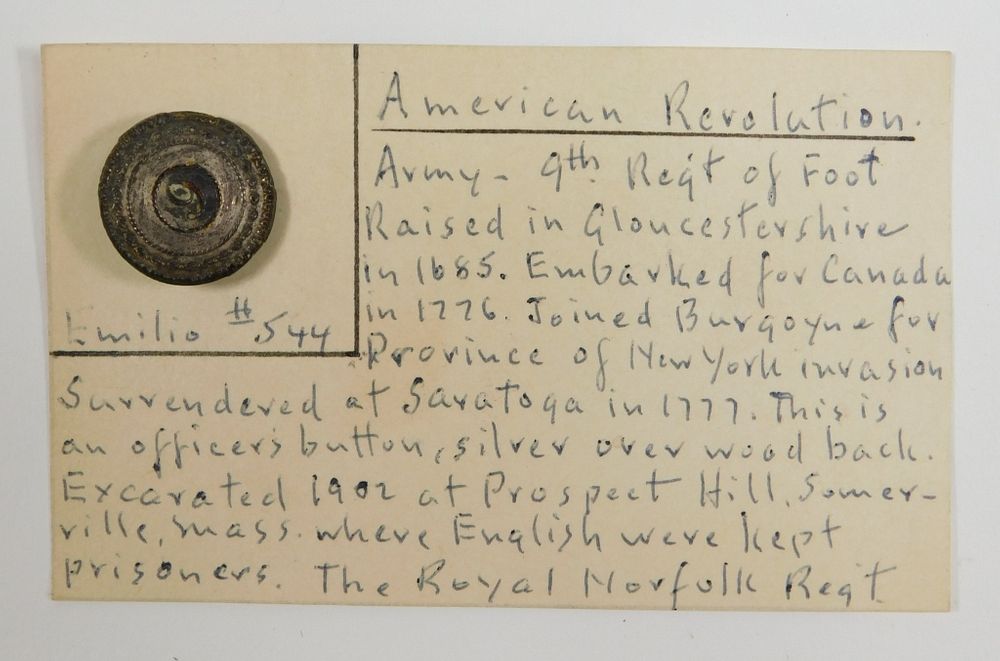 American Revolution.
Army - 9th Reg't of Foot
Raised in Gloucestershire
in 1685. Embarked for Canada
in 1776. Joined Burgoyne for
Province of New York invasion
Emilio # 544
Surrendered at Saratoga in 1777. This is
an officer's button, silver over wood back.
Excavated 1902 at Prospect Hill, Somer-
ville, Mass. where English were kept
prisoners. The Royal Norfolk Reg't